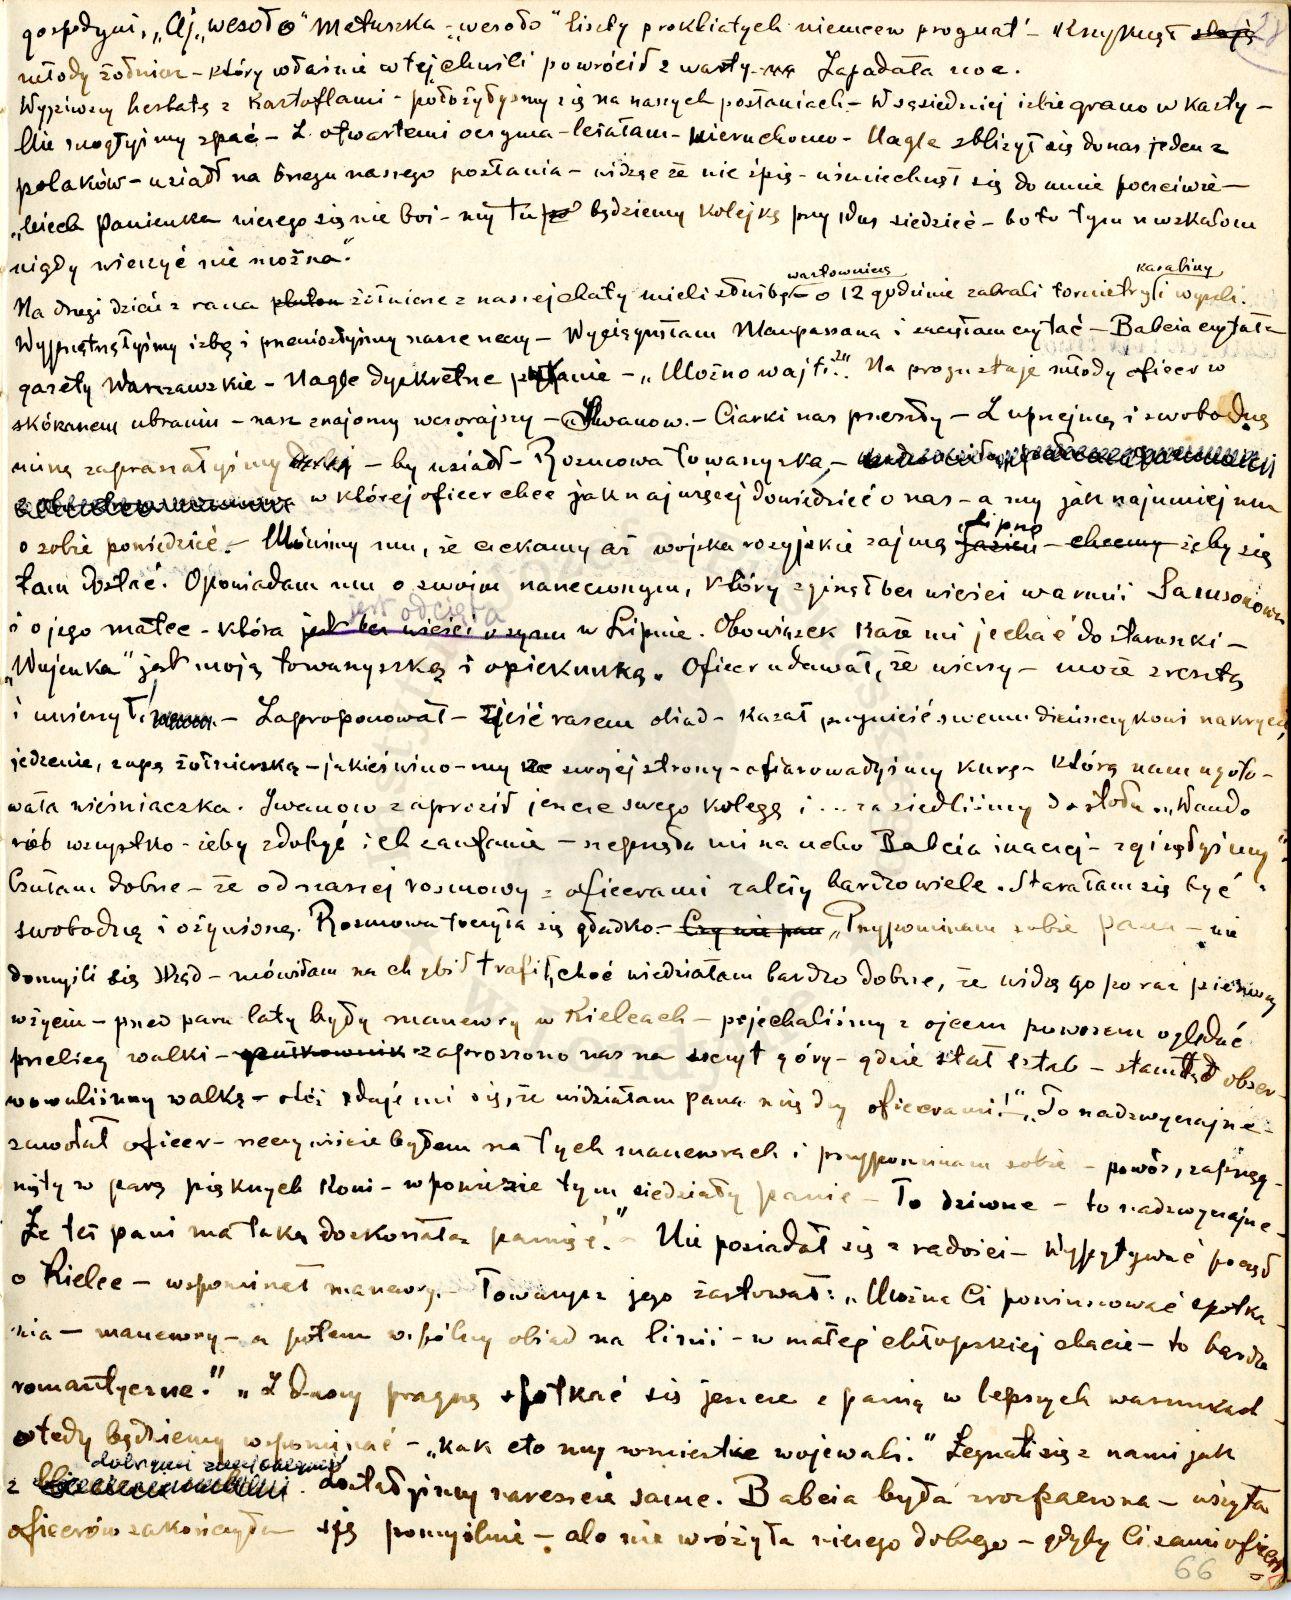 gospodyni, „Aj „wesoło" Matuszka - „wesoło" liszty prokliatych niemcew prognat' - Krzyknął
młody żołnierz - który właśnie w tej chwili powrócił z warty - Zapadała noc.
Wypiwszy herbatę z kartoflami - położyłyśmy się na naszych posłaniach - W sąsiedniej izbie grano w karty -
Nie mogłyśmy spać - Z otwartemi oczyma - leżałam - nieruchomo - Nagle zbliżył się do nas jeden z
polaków - usiadł na brzegu naszego posłania - widząc że nie śpię - uśmiechnął się do mnie poczciwie -
„Niech Panienka niczego się nie boi - my tu będziemy kolejką przy Was siedzieć - bo to tym moskalom
nigdy wierzyć nie można".
wartowniczą karabiny
Na drugi dzień z rana pluton żołnierze z naszej chaty mieli służbę - o 12 godzinie zabrali tornistry i wyszli.
Wyprzątnęłyśmy izbę i przeniosłyśmy nasze rzeczy - Wyciągnęłam Maupassana i zaczęłam czytać - Babcia czytała
gazety Warszawskie - Nagle dyskretne pytanie - „Możno wajti?" Na progu staje młody oficer w
skórzanem ubraniu - nasz znajomy wczorajszy - Iwanow. - Ciarki nas przeszły - Z uprzejmą i swobodną
miną zapraszałyśmy - by usiadł - Rozmowa towarzyska, -
w której oficer chce jak najwięcej dowiedzieć o nas - a my jak najmniej mu
Lipno
o sobie powiedzieć. - Mówimy mu, że czekamy aż wojska rosyjskie zajmą - chcemy żeby się
tam dostać. Opowiadam mu o swoim narzeczonym, który zginął bez wieści w armii Samsonowa
jest odcięta
i o jego matce - która jest bez wieści o synu w Lipnie. Obowiązek każe mi jechać do staruszki -
„Wujenka" jest moją towarzyszką i opiekunką. Oficer udawał, że wierzy - może zresztą
i uwierzył! - Zaproponował - zjeść razem obiad - kazał przynieść swemu dieńszczykowi nakrycia,
jedzenie, zupę żołnierską - jakieś wino - my ze swojej strony - ofiarowałyśmy kurę - którą nam ugoto-
wała wieśniaczka. Iwanow zaprosił jeszcze swego kolegę i ... zasiedliśmy do stołu. „Wando
rób wszystko - żeby zdobyć ich zaufanie - szepnęła mi na ucho Babcia inaczej - zginęłyśmy"
Czułam dobrze - że od naszej rozmowy z oficerami zależy bardzo wiele. Starałam się być
swobodną i ożywioną. Rozmowa toczyła się gładko. - Czy nie pan „Przypominam sobie pana - nie
domyśli się skąd - mówiłam na chybił trafił, choć wiedziałam bardzo dobrze, że widzę go po raz pierwszy
w życiu - przed paru laty były manewry w Kielcach - pojechaliśmy z ojcem powozem oglądać
przebieg walki - pułkownik zaproszono nas na szczyt góry - gdzie stał sztab - stamtąd obser-
wowaliśmy walkę - otóż zdaje mi się, że widziałam pana między oficerami!" „To nadzwyczajne -
zawołał oficer - rzeczywiście byłem na tych manewrach i przypominam sobie - powóz, zaprzęg-
nięty w parę pięknych koni - w powozie tym siedziały panie - To dziwne - to nadzwyczajne -
Że też pani ma taką doskonałą pamięć." - Nie posiadał się z radości - Wypytywać począł
o Kielce - wspominał manewry. - Towarzysz jego żartował: „Można Ci powinszować spotka-
nia - manewry - a potem wspólny obiad na linii - w małej chłopskiej chacie - to bardzo
romantyczne." „Z duszy pragnę spotkać się jeszcze z panią w lepszych warunkach -
wtedy będziemy wspominać - „kak eto my wmiestie wojewali." Żegnali się z nami jak
dobrymi znajomymi
z . Zostałyśmy nareszcie same. Babcia była zrozpaczona - wizyta
oficerów zakończyła się pomyślnie - ale nie wróżyła niczego dobrego - gdyby Ci sami oficer
66